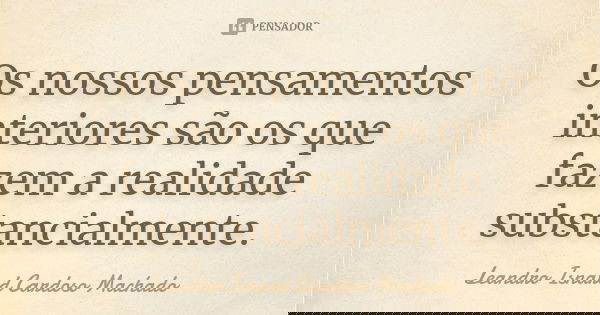 PENSADOR
Os nossos pensamentos
interiores são os que
fazem a realidade
substancialmente.
Leandro Isnard Cardoso Machado